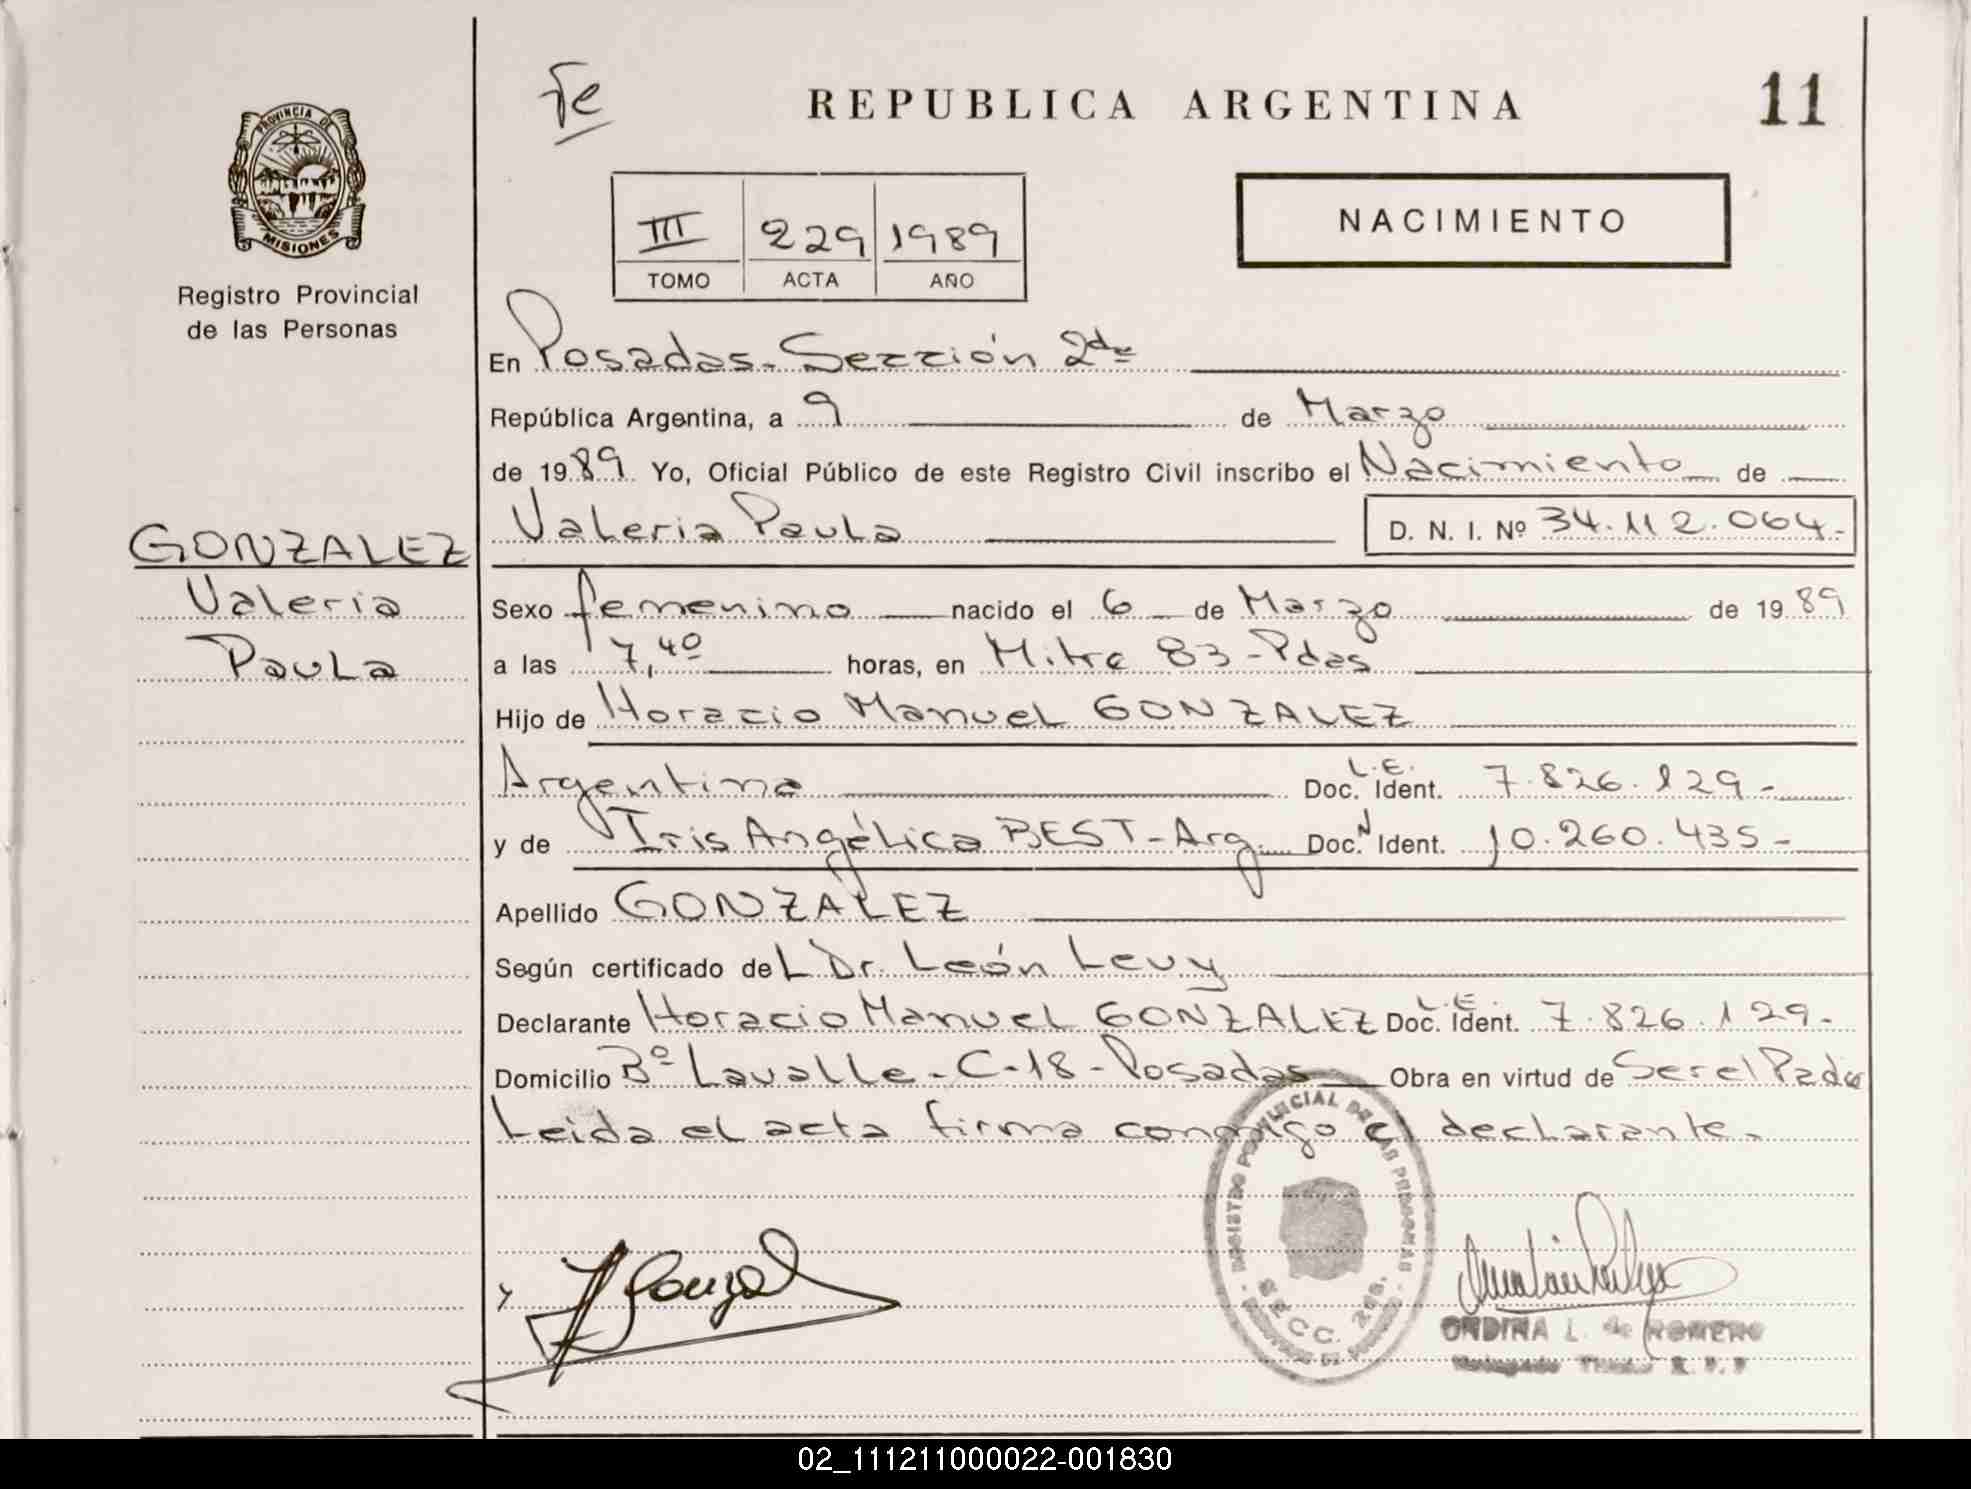 Fe
REPUBLICA ARGENTINA
11
PROVINCIA DE
MISIONES
Registro Provincial
de las Personas
NACIMIENTO
III 229 1989
TOMO ACTA AÑO
En Posadas - Sección 2da
República Argentina, a 9 de Marzo
de 1989 Yo, Oficial Público de este Registro Civil inscribo el Nacimiento de
Valeria Paula D. N. I. Nº 34.112.064.-
GONZALEZ
Valeria
Paula
Sexo femenino nacido el 6 de Marzo de 1989
a las 7,40 horas, en Mitre 83 - Pdas
Hijo de Horacio Manuel GONZALEZ
Argentina L.E. Doc. Ident. 7.826.129-
y de Iris Angélica BEST - Arg. Doc. N Ident. 10.260.435-
Apellido GONZALEZ
Según certificado del Dr. León Levy
Declarante Horacio Manuel GONZALEZ L.E. Doc. Ident. 7.826.129-
Domicilio Bº Lavalle - C-18 - Posadas Obra en virtud de Ser el Padre
Leida el acta firma conmigo el declarante.
REGISTRO PROVINCIAL DE LAS PERSONAS
SECC. 2da.
ORDINA L. de ROMERO
02_111211000022-001830